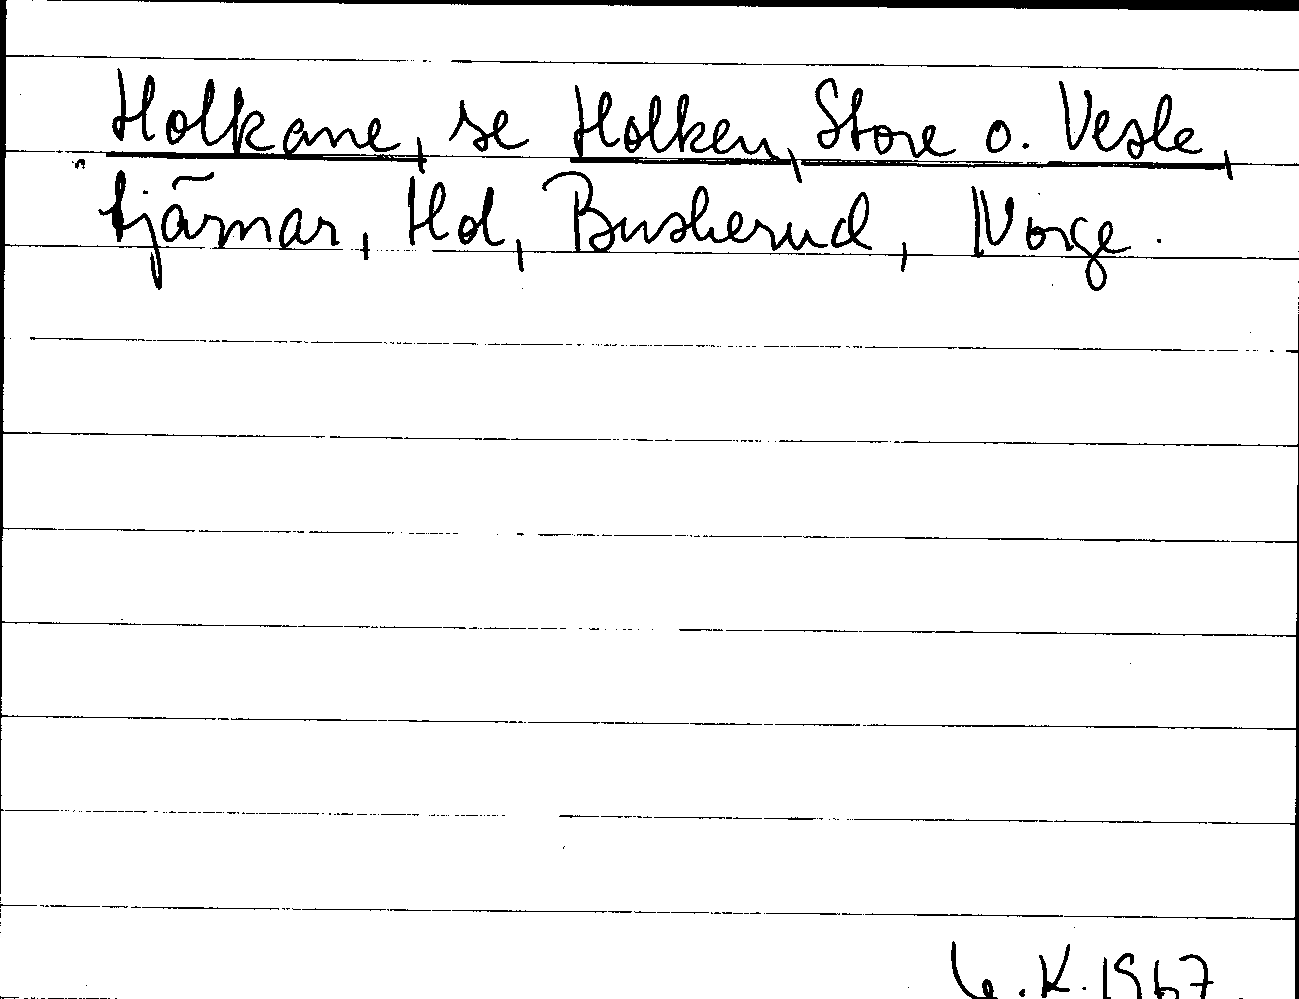 Holkane, se Holken, Store o. Vesle,
tjärnar, Hol, Buskerud, Norge.
G.K. 1967.